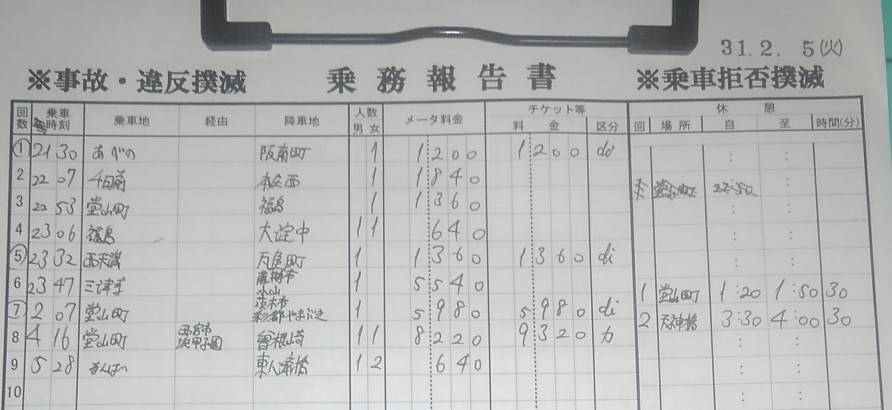 31.2. 5(火)
※事故・違反撲滅 乗務報告書 ※乗車拒否撲滅
回数 乗車時刻 乗車地 経由 降車地 人数 男 女 メータ料金 チケット等 料金 区分 休憩 回 場所 自 至 時間(分)
① 21 30 あべの 阪南町 1 1200 1200 do
2 22 07 千日前 本庄西 1 1840
3 22 53 堂山町 福島 1 1360 22:50
4 23 06 福島 大淀中 1 1 640
⑤ 23 32 西天満 瓦屋町 1 1360 1360 di
6 23 47 三津寺 藤井寺市 小山 1 5540 1 堂山町 1:20 1:50 30
⑦ 2 07 堂山町 茨木市 彩都やまぶき 1 5980 5980 di 2 天神橋 3:30 4:00 30
8 4 16 堂山町 西宮市 甲子園 曾根崎 1 1 8220 9320 カ
9 5 28 なんば 東心斎橋 1 2 640
10